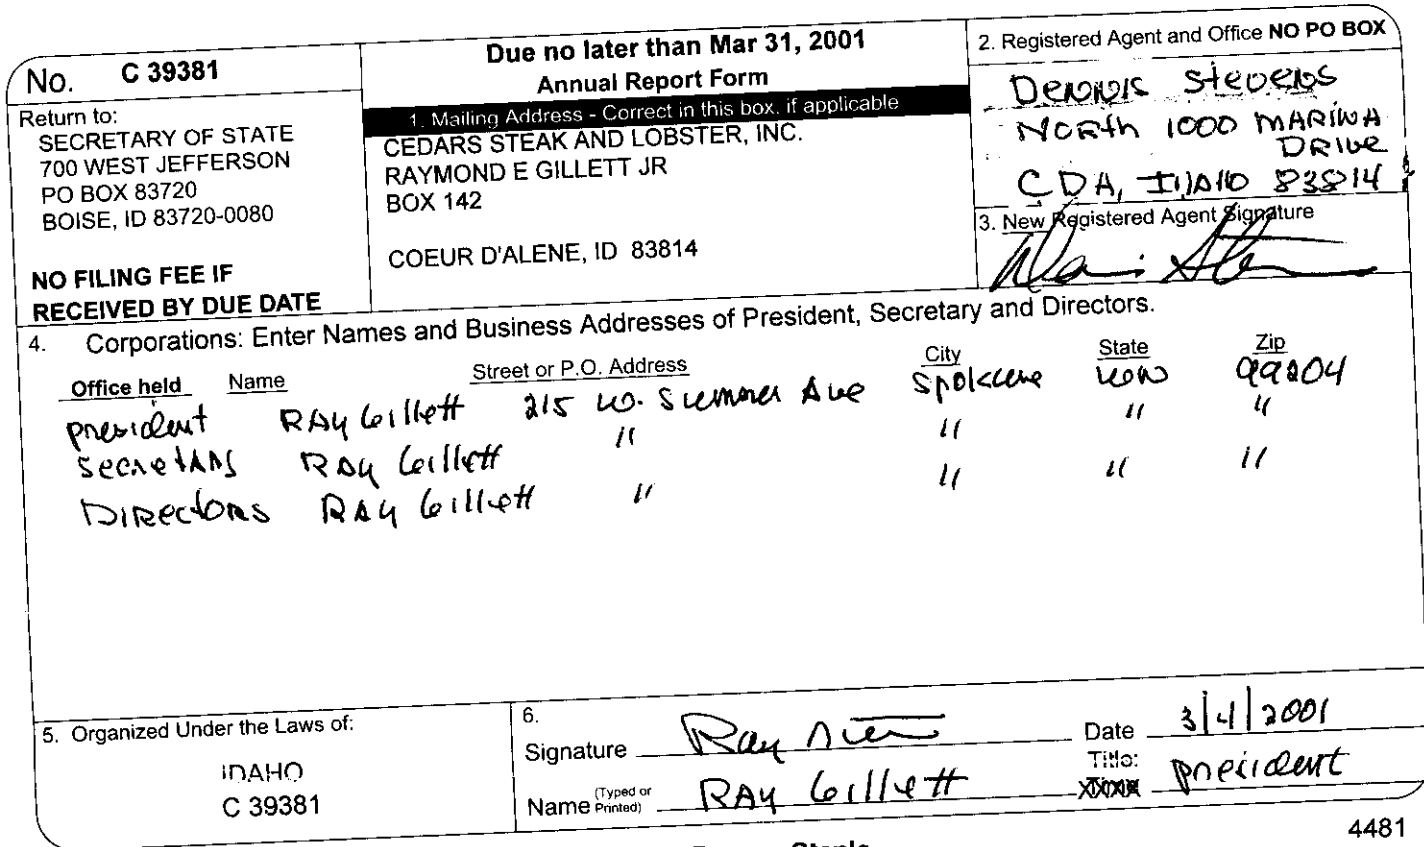 No. C 39381
Return to:
SECRETARY OF STATE
700 WEST JEFFERSON
PO BOX 83720
BOISE, ID 83720-0080
NO FILING FEE IF
RECEIVED BY DUE DATE
Due no later than Mar 31, 2001
Annual Report Form
1. Mailing Address - Correct in this box, if applicable
CEDARS STEAK AND LOBSTER, INC.
RAYMOND E GILLETT JR
BOX 142
COEUR D'ALENE, ID 83814
2. Registered Agent and Office NO PO BOX
Dennis Stevens
North 1000 MARINA
DRIVE
CDA, IDAHO 83814
3. New Registered Agent Signature
4. Corporations: Enter Names and Business Addresses of President, Secretary and Directors.
Office held Name Street or P.O. Address City State Zip
president RAY Gillett 215 W. Sumner Ave Spokane WN 99204
secretary RAY Gillett " " " "
DIRECTORS RAY Gillett " " " "
5. Organized Under the Laws of:
IDAHO
C 39381
6.
Signature Ray Date 3/4/2001
Name (Typed or Printed) RAY Gillett Title: president
4481